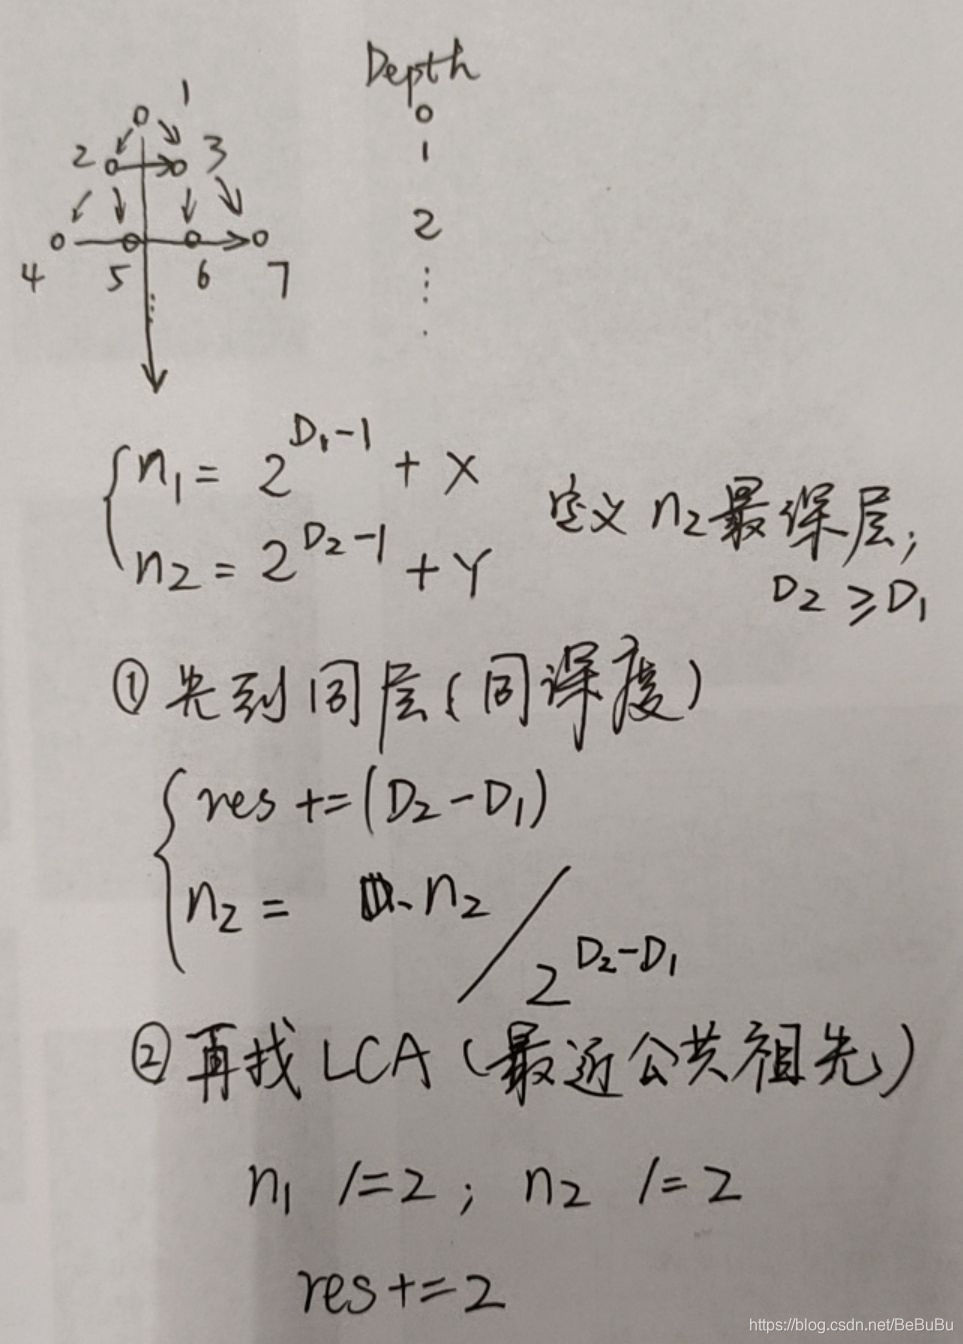 Depth
1
0
2
3
1
2
4
5
6
7
n₁ = 2^(D₁-1) + X
n₂ = 2^(D₂-1) + Y
定义 n₂最深层;
D₂ ≥ D₁
① 先到同层(同深度)
res += (D₂-D₁)
n₂ = n₂ / 2^(D₂-D₁)
② 再找 LCA (最近公共祖先)
n₁ /=2 ; n₂ /=2
res+=2
https://blog.csdn.net/BeBuBu